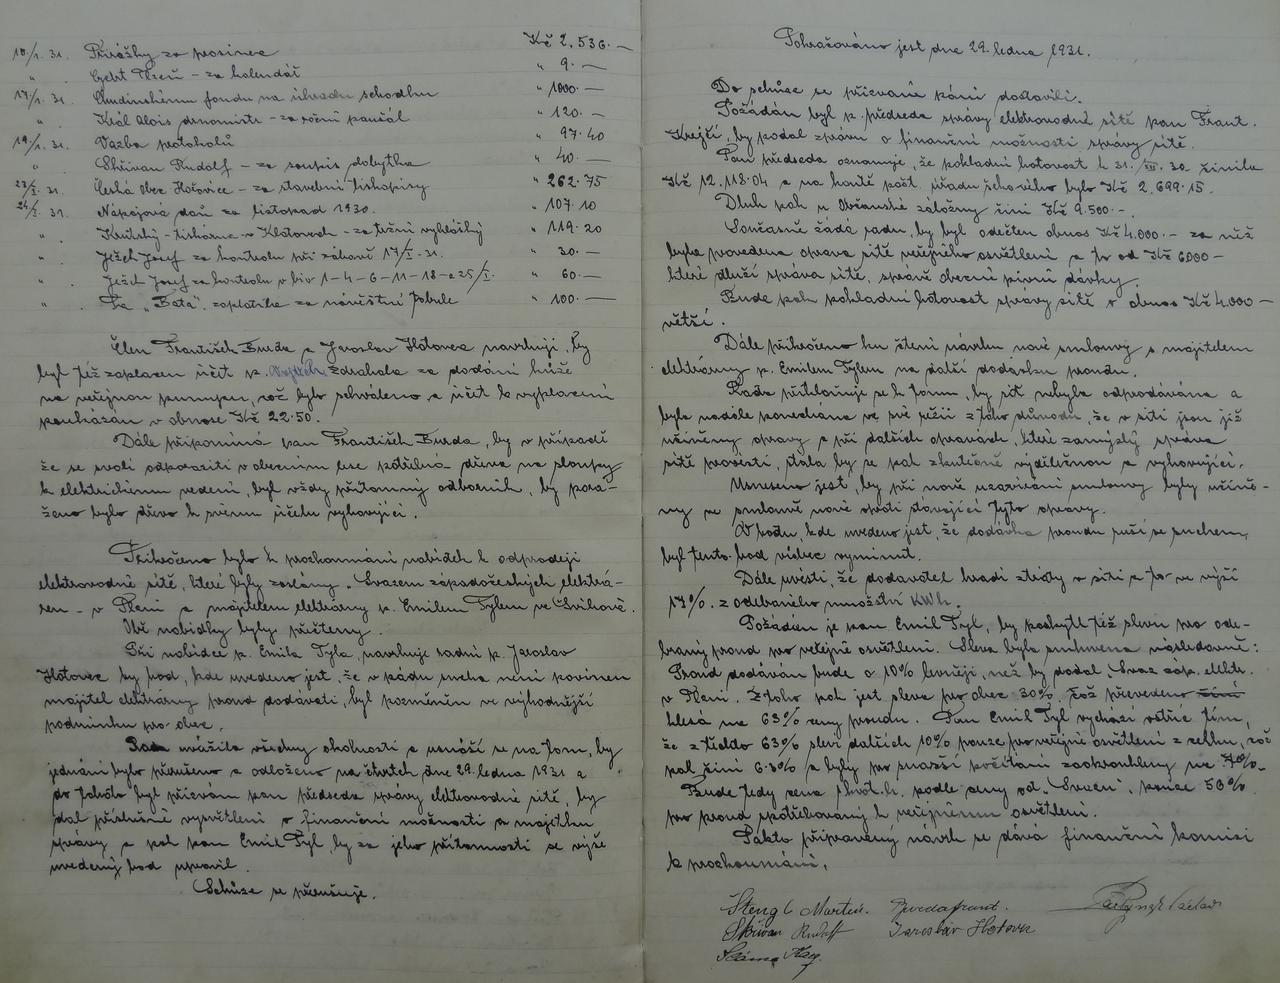 10./1. 31. Přirážky za prosinec Kč 2.536.—
" Gebrt Plzeň - za kalendář " 9.—
17/1. 31. Chudinskému fondu na úhradu schodku " 1000.—
" Král Alois - za roční paušál " 120.—
19/1. 31. Vazba protokolů " 97.40
" Skřivan Rudolf - za soupis dobytka " 40.—
23/I. 31. Česká obec Hořovice - za stavební tiskopisy " 262.75
24/I. 31. Nápojová daň za listopad 1930. " 107.10
" - tiskárna v Klatovech - za tržní vyhlášky " 119.20
" Ježek Josef za kontrolu při zábavě 17/I. 31. " 30.—
" Ježek Josef za kontrolu v bio 1-4-6-11-18- a 25/I. " 60.—
" Fa "Baťa" zaplatila za návěstní tabule " 100.—
Člen František Burda a Jaroslav Hotovec navrhují, by
byl též zaplacen účet p. Zdrahala za dodání kůže
na veřejnou pumpu, což bylo schváleno a účet k vyplacení
poukázán v obnose Kč 22.50.
Dále připomíná pan František Burda, by v případě
že se svolí odporoziti v obecním lese potřebná dřeva na sloupky
k elektrickému vedení, byl vždy přítomný odborník, by pora-
ženo bylo dřevo k svému účelu vyhovující.
Přikročeno bylo k prozkoumání nabídek k odprodeji
elektrovodné sítě, které byly zaslány "Svazem západočeských elektrá-
ren - v Plzni a majitelem elektrárny p. Emilem Tylem ve Švihově.
Obě nabídky byly přečteny.
Při nabídce p. Emila Tyla, navrhuje radní p. Jaroslav
Hotovec by bod, kde uvedeno jest, že v pádu sucha není povinen
majitel elektrárny proud dodávati, byl pozměněn ve výhodnější
podmínku pro obec.
Rada uvážila všechny okolnosti a usnáší se na tom, by
jednání bylo přerušeno a odloženo na čtvrtek dne 29. ledna 1931 a
do tohoto byl přizván pan předseda správy elektrovodné sítě, by
dal příslušné vysvětlení o finanční možnosti a majetku
správy a pak pan Emil Tyl, by za jeho přítomnosti se výše
uvedený bod upravil.
Schůze se přerušuje.
Pokračováno jest dne 29. ledna 1931.
Do schůze se přizvaní páni dostavili.
Požádán byl p. předseda správy elektrovodné sítě pan Frant.
Krejčí, by podal zprávu o finanční možnosti správy sítě.
Pan předseda oznamuje, že pokladní hotovost k 31./XII. 30. činila
Kč 12.118.04 a na kontě pošt. úřadu šekového bylo Kč 2.699.15.
Dluh pak u Občanské záložny činí Kč 9.500.-.
Současně žádá radu, by byl odečten obnos Kč 4.000.- za něž
byla provedena oprava sítě veřejného osvětlení a to od Kč 6000-
které dluží správa sítě, správě obecní pivní dávky.
Bude pak pokladní hotovost správy sítě o obnos Kč 4.000-
větší.
Dále přikročeno ku čtení návrhu nové smlouvy s majitelem
elektrárny p. Emilem Tylem na další dodávku proudu.
Rada přikloňuje se k tomu, by síť nebyla odprodávána a
byla nadále ponechána ve své režii z toho důvodu, že v síti jsou již
učiněny opravy a při dalších opravách, které zamýšlí správa
sítě provésti, stala by se pak skutečně výdělečnou a vyhovující.
Usneseno jest, by při nově uzavírání smlouvy byly učině-
ny ve smlouvě nové oproti stávající tyto opravy.
V bodu, kde uvedeno jest, že dodávka proudu ruší se suchem,
byl tento bod vůbec vyminut.
Dále uvésti, že dodavatel hradí ztráty v síti a to ve výši
17%. z odebraného množství KWh.
Požádán je pan Emil Tyl, by poskytl též slevu pro ode-
braný proud pro veřejné osvětlení. Sleva byla smluvena následovně:
Proud dodáván bude o 10% levněji, než by dodal "Svaz záp. elektr.
v Plzni. Z toho pak jest sleva pro obec 30%. Což převedeno činí
klesá na 63% ceny proudu. Pan Emil Tyl vychází vstříc tím,
že z těchto 63% sleví dalších 10% pouze pro veřejné osvětlení z celku, což
pak činí 6.3% a byly pro snazší počítání zaokrouhleny na 7%.
Bude tedy cena podle ceny od "Svazu", pouze 56%
pro proud spotřebovaný k veřejnému osvětlení.
Takto připravený návrh se dává finanční komisi
k prozkoumání.
Štengl Martin. Burda Frant.
Skřivan Rudolf Jaroslav Hotovec